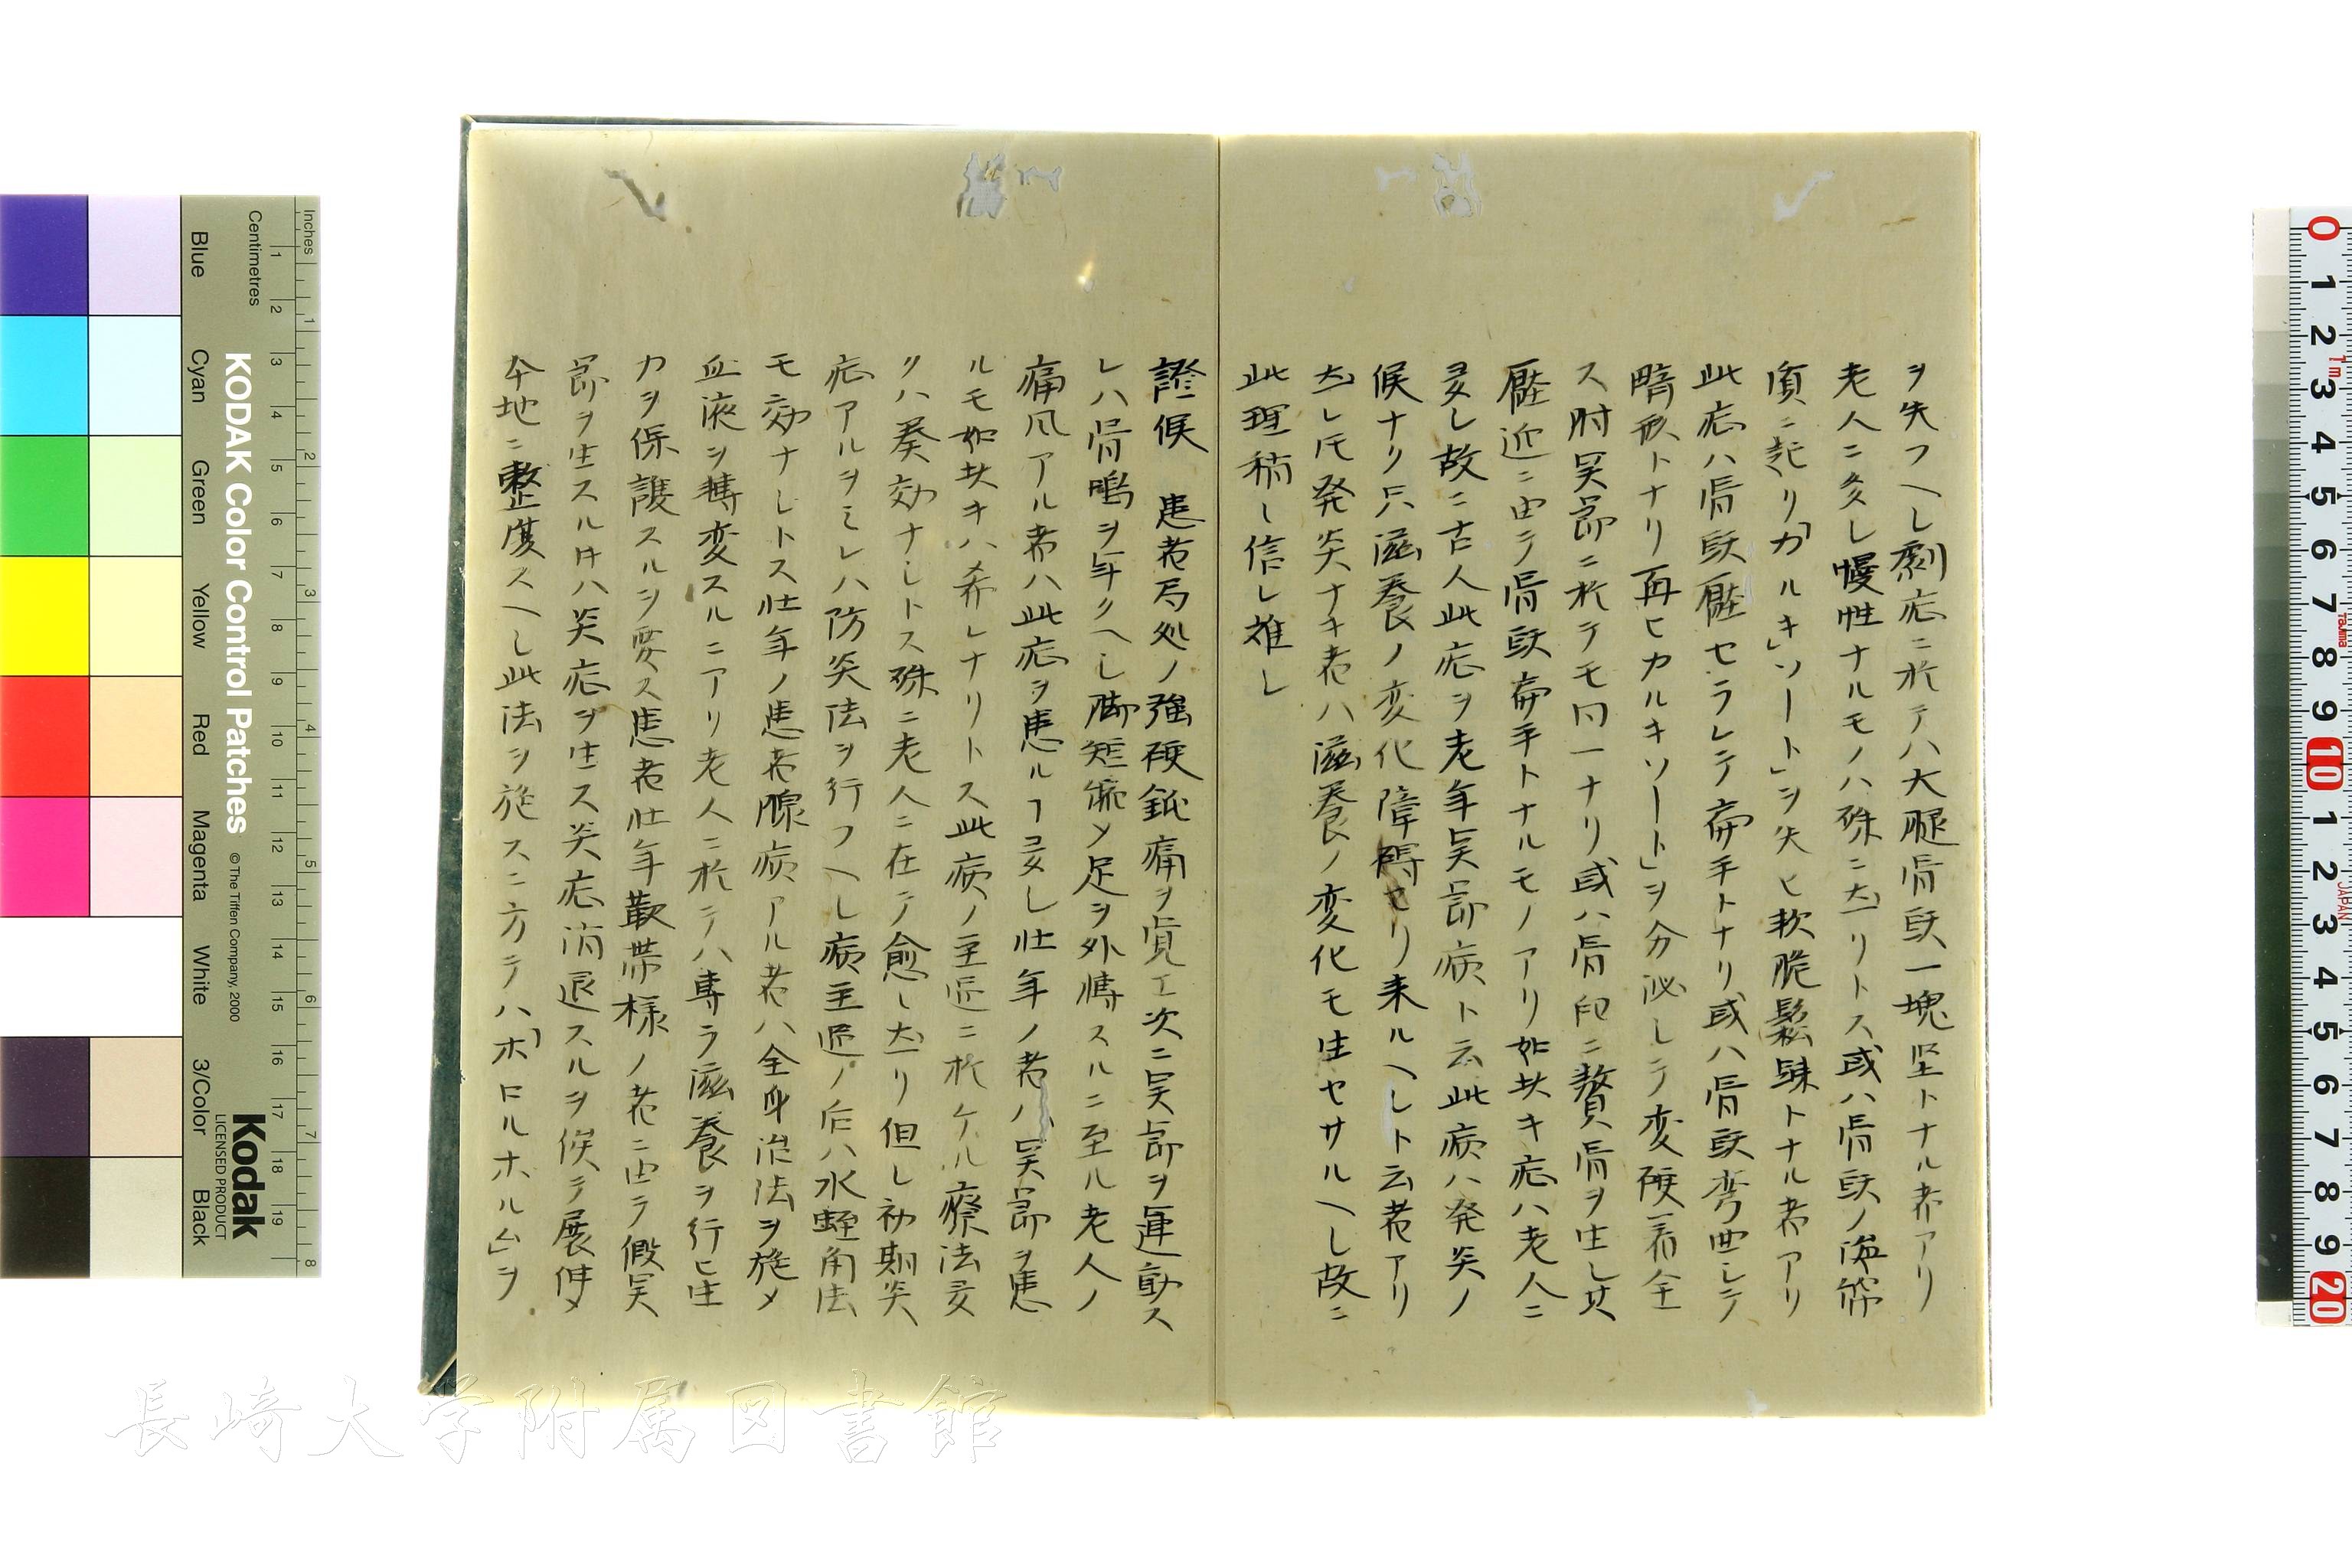 ヲ失フヘし劇症ニ於テハ大腿骨頭一塊堅トナル者アリ
老人ニ多し慢性ナルモノハ殊ニ然リトス或ハ骨頭ノ海綿
質ニ起リ「カルキ」ソート」ヲ失ヒ軟脆鬆疎トナル者アリ
此症ハ骨頭壓セラレテ扁平トナリ或ハ骨頭弯曲レテ
畸形トナリ再ヒカルキソート」ヲ分泌レテ変硬着全
ス肘関節ニ於テモ同一ナリ或ハ骨臼ニ贅骨ヲ生レ其
壓迫ニ由テ骨頭扁平トナルモノアリ如此キ症ハ老人ニ
多し故ニ古人此症ヲ老年関節病ト云此病ハ発炎ノ
候ナリ只滋養ノ変化障碍セリ来ルヘレト云者アリ
然レ𪜈発炎ナキ者ハ滋養ノ変化モ生セサルヘし故ニ
此理稍し信レ難レ
證候　患者局処ノ強硬鈍痛ヲ覚エ次ニ関節ヲ運動ス
レハ骨鳴ヲ聞クヘし脚短縮メ足ヲ外轉スルニ至ル老人ノ
痛風アル者ハ此症ヲ患ルヿ多し壮年ノ者ハ関節ヲ患
ルモ如此キハ希レナリトス此病ノ主匠ニ於ケル療法多
クハ奏効ナしトス殊ニ老人ニ在テ愈し然リ但し初期炎
症アルヲミレハ防炎法ヲ行フヘし病主匠ノ后ハ水蛭角法
モ効ナしトス壮年ノ患者腺病アル者ハ全身治法ヲ施メ
血液ヲ轉変スルニアリ老人ニ於テハ専ラ滋養ヲ行ヒ生
力ヲ保護スルヲ要ス患者壮年歇帯様ノ者ニ由テ假関
節ヲ生スル㐧ハ炎症ヲ生ス炎症消退スルヲ候テ展伸メ
本地ニ整復スヘし此法ヲ施スニ方テハ「ホロルホルム」ヲ
KODAK Color Control Patches
© The Tiffen Company, 2000
Kodak
LICENSED PRODUCT
Inches
Centimetres
Blue
Cyan
Green
Yellow
Red
Magenta
White
3/Color
Black
長崎大学附属図書館